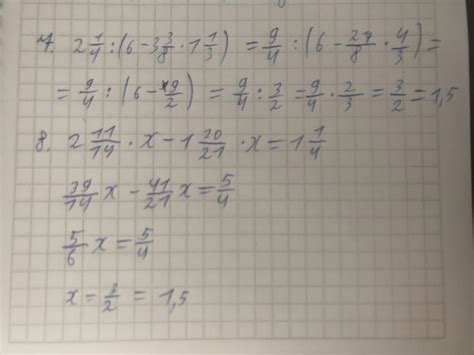 7. 2 1/4 : (6 - 3 3/8 · 1 1/3) = 9/4 : (6 - 27/8 · 4/3) =
= 9/4 : (6 - 9/2) = 9/4 : 3/2 = 9/4 · 2/3 = 3/2 = 1,5
8. 2 11/14 · x - 1 20/21 · x = 1 1/4
39/14 x - 41/21 x = 5/4
5/6 x = 5/4
x = 3/2 = 1,5